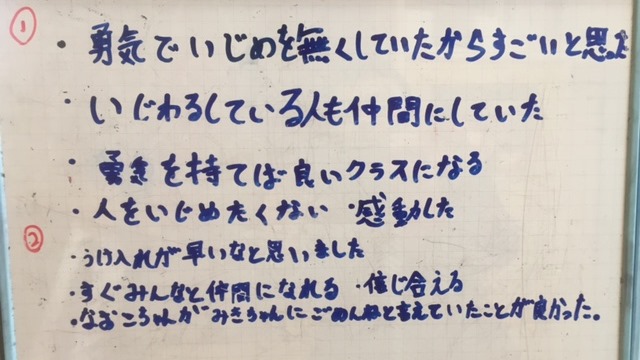 ① ・勇気でいじめを無くしていたからすごいと思った
・いじわるしている人も仲間にしていた
・勇気を持てば良いクラスになる
・人をいじめたくない ・感動した
② ・うけ入れが早いなと思いました
・すぐみんなと仲間になれる ・信じ合える
・なおこちゃんがみきちゃんにごめんねと言えていたことが良かった。